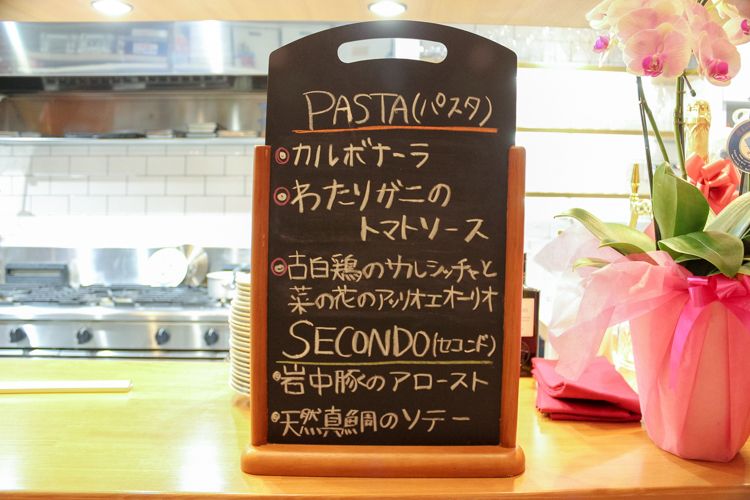 PASTA(パスタ)
カルボナーラ
わたりガニの
トマトソース
古白鶏のサルシッチャと
菜の花のアーリオエオーリオ
SECONDO(セコンド)
・岩中豚のアロースト
・天然真鯛のソテー